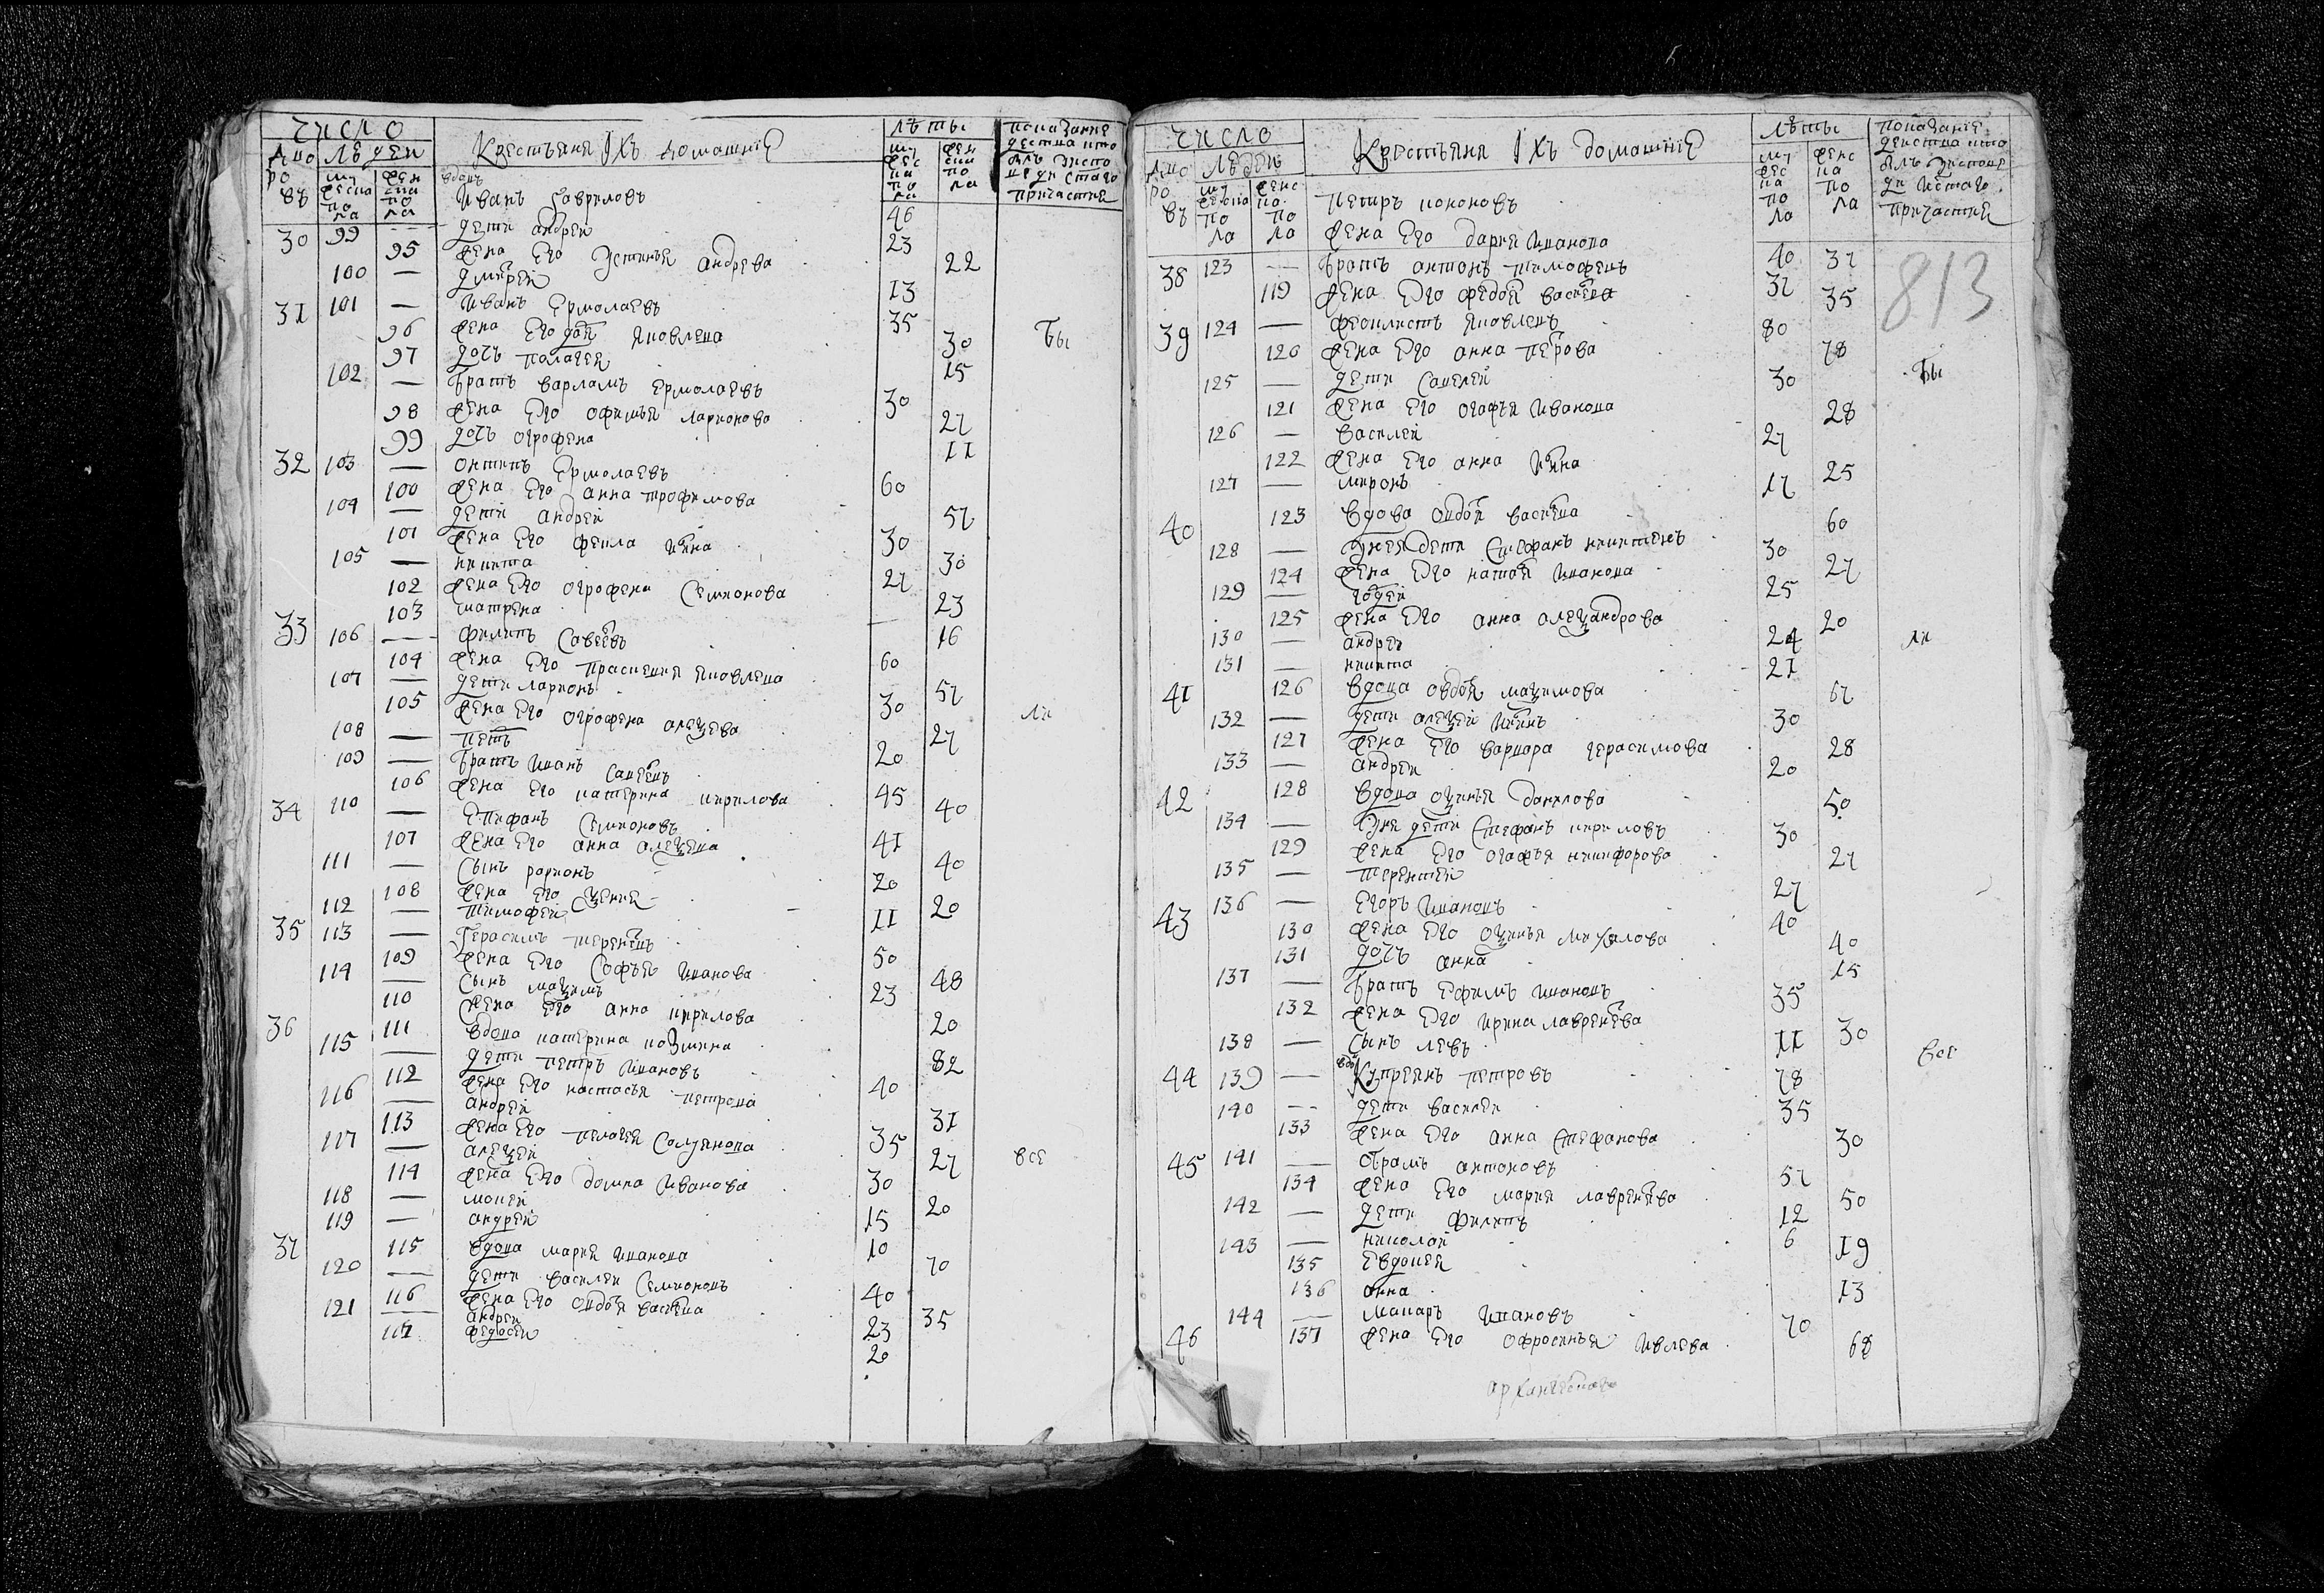 число
дворовъ
людей
мужеска пола
женска пола
Крестьяня Iхъ домашние
лѣты
мужеска пола
женска пола
показание действа кто был у исповеди и святого причастия
вдовъ
Иванъ Гавриловъ 46
30 99 — дети андрей 23
95 жена Его Устинья андрева 22
100 — дмитрей 13
31 101 — Иванъ Ермолаевъ 35
96 жена Его Яковлева 30
97 дочь полагея 15
102 — братъ варламъ Ермолаевъ 30
98 жена Его офимья ларионова 27
99 дочь огрофена 11
32 103 — онтипъ Ермолаевъ 60
100 жена Его анна трофимова 57
104 — дети андрей 30
101 жена Его фекла Ивана 30
105 — никита 27
102 жена Его огрофена Семионова 23
103 матрена 16
33 106 — филипъ Савевъ 60
104 жена Его прасковия Яковлева 57
107 — дети ларионъ 30
105 жена Его огрофена алексева 27
108 — петръ 20
109 — братъ Иванъ Савевъ 45
106 жена Его катерина кирилова 40
34 110 — Епифанъ Семионовъ 41
107 жена Его анна алексева 40
111 — Сынъ родионъ 20
108 жена Его ксения 20
112 — тимофей 11
35 113 — Герасимъ терентевъ 50
109 жена Его Софья Иванова 48
114 — Сынъ максимъ 23
110 жена Его анна кирилова 20
36 111 вдова катерина козмина 82
115 — дети петръ Ивановъ 40
112 жена Его настасья петрова 31
116 — андрей 35
113 жена Его пелагея 27
117 — алексей 30
114 жена Его домна Иванова 20
118 — 15
119 — андрей 10
37 115 вдова мария Иванова 70
120 — дети василей Семионовъ 40
116 жена Его овдотя васильева 35
121 — андрей 23
117 федосей 20
бы
ли
все
число
дворовъ
людей
мужеска пола
женска пола
Крестьяня Iхъ домашние
лѣты
мужеска пола
женска пола
показание действа кто был у исповеди и святого причастия
813
петръ кононовъ 40
жена Его дария Иванова 37
38 123 — братъ антонъ тимофевъ 37
119 жена Его федотя васильева 35
39 124 — феоклистъ Яковлевъ 80
120 жена Его анна петрова 78
125 — дети Савелей 30
121 жена Его огафья Иванова 28
126 — василей 27
122 жена Его анна Ивана 25
127 — миронъ 17
40 123 вдова овдотя васильева 60
128 — Унея дети Стефанъ никитинъ 30
124 жена Его наталя Иванова 27
129 — гордей 25
125 жена Его анна александрова 20
130 — андрей 24
131 — никита 21
41 126 вдова овдотя максимова 67
132 — дети алексей Ивановъ 30
127 жена Его варвара герасимова 28
133 — андрей 20
42 128 вдова оксинья данилова 50
134 — Унея дети Стефанъ кириловъ 30
129 жена Его огафья никифорова 27
135 — терентей 27
43 136 — Егоръ Ивановъ 40
130 жена Его оксинья михалова 40
131 дочь анна 15
137 — братъ Ефимъ Ивановъ 35
132 жена Его Ирина лаврентева 30
138 — Сынъ левъ 11
44 139 — вдовъ Купреянъ петровъ 78
140 — дети василей 35
133 жена Его анна Стефанова 30
45 141 — обрамъ антоновъ 57
134 жена Его мария лаврентева 50
142 — дети филипъ 12
143 — николай 6
135 Евдокея 19
136 анна 13
144 — макаръ Ивановъ 70
46 137 жена Его офросинья Ивлева 68
бы
ли
все
архангелскаго